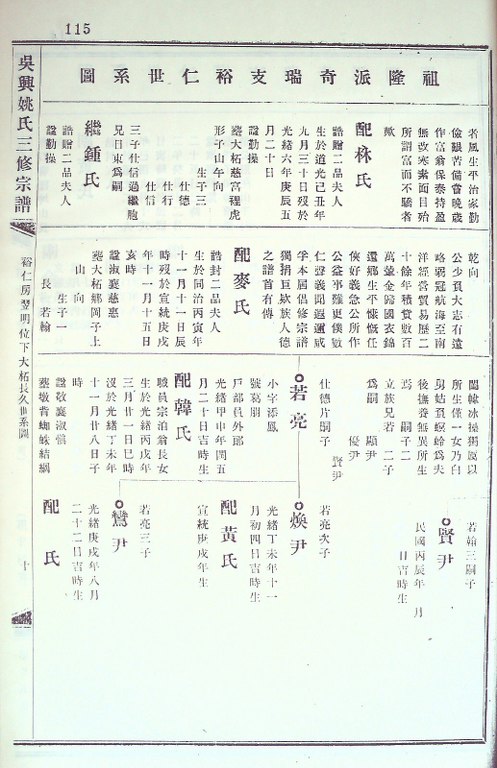 115
祖隆派奇瑞支裕仁世系圖
吳興姚氏三修宗譜
裕仁房翌明位下大柘長久世系圖
十
者風生平治家勤
儉艱苦備嘗晚歲
作富翁保泰持盈
無改寒素面目殆
所謂富而不驕者
歟
配林氏
誥贈二品夫人
生於道光己丑年
九月三十日歿於
光緒六年庚辰五
月二十日
諡勤操
塟大柘慈宫程虎
形子山午向
生子三
仕德
仕行
仕信
三子仕信過繼胞
兄日東爲嗣
繼鍾氏
誥贈二品夫人
諡勤操
乾向
公少負大志有遠
略弱冠航海至南
洋經營貿易歷二
十餘年積貲數百
萬鍰金歸國衣錦
還鄉生平慷慨任
俠好義急公所作
公益事難更僕數
仁聲義聞遐邇咸
孚本屆倡修宗譜
獨捐巨欵族人德
之譜首有傳
配麥氏
誥封二品夫人
生於同治丙寅年
十一月十一日辰
時歿於宣統庚戌
年十一月十五日
亥時
諡淑襄慈惠
塟大柘鄉岡子上
山向
生子一
長若翰
閫幃冰操獨凾以
所生僅一女乃白
舅姑負螟蛉爲夫
後撫養無異所生
焉
嗣子二
立族兄若
二子
爲嗣
顯尹
優尹
賢尹
仕德片嗣子
若亮
小字添鳳
號葛朋
戶部員外郎
光緒甲申年閏五
月二十日吉時生
配韓氏
職員宗泊翁長女
生於光緒丙戌年
三月廿一日巳時
沒於光緒丁未年
十一月廿八日子
時
諡敬襄淑愼
塟墩背蜘蛛結網
若翰三嗣子
賢尹
民國丙辰年
月
日吉時生
若亮次子
煥尹
光緒丁未年十一
月初四日吉時生
配黃氏
宣統庚戌年生
若亮三子
鸞尹
光緒庚戌年八月
二十二日吉時生
配
氏